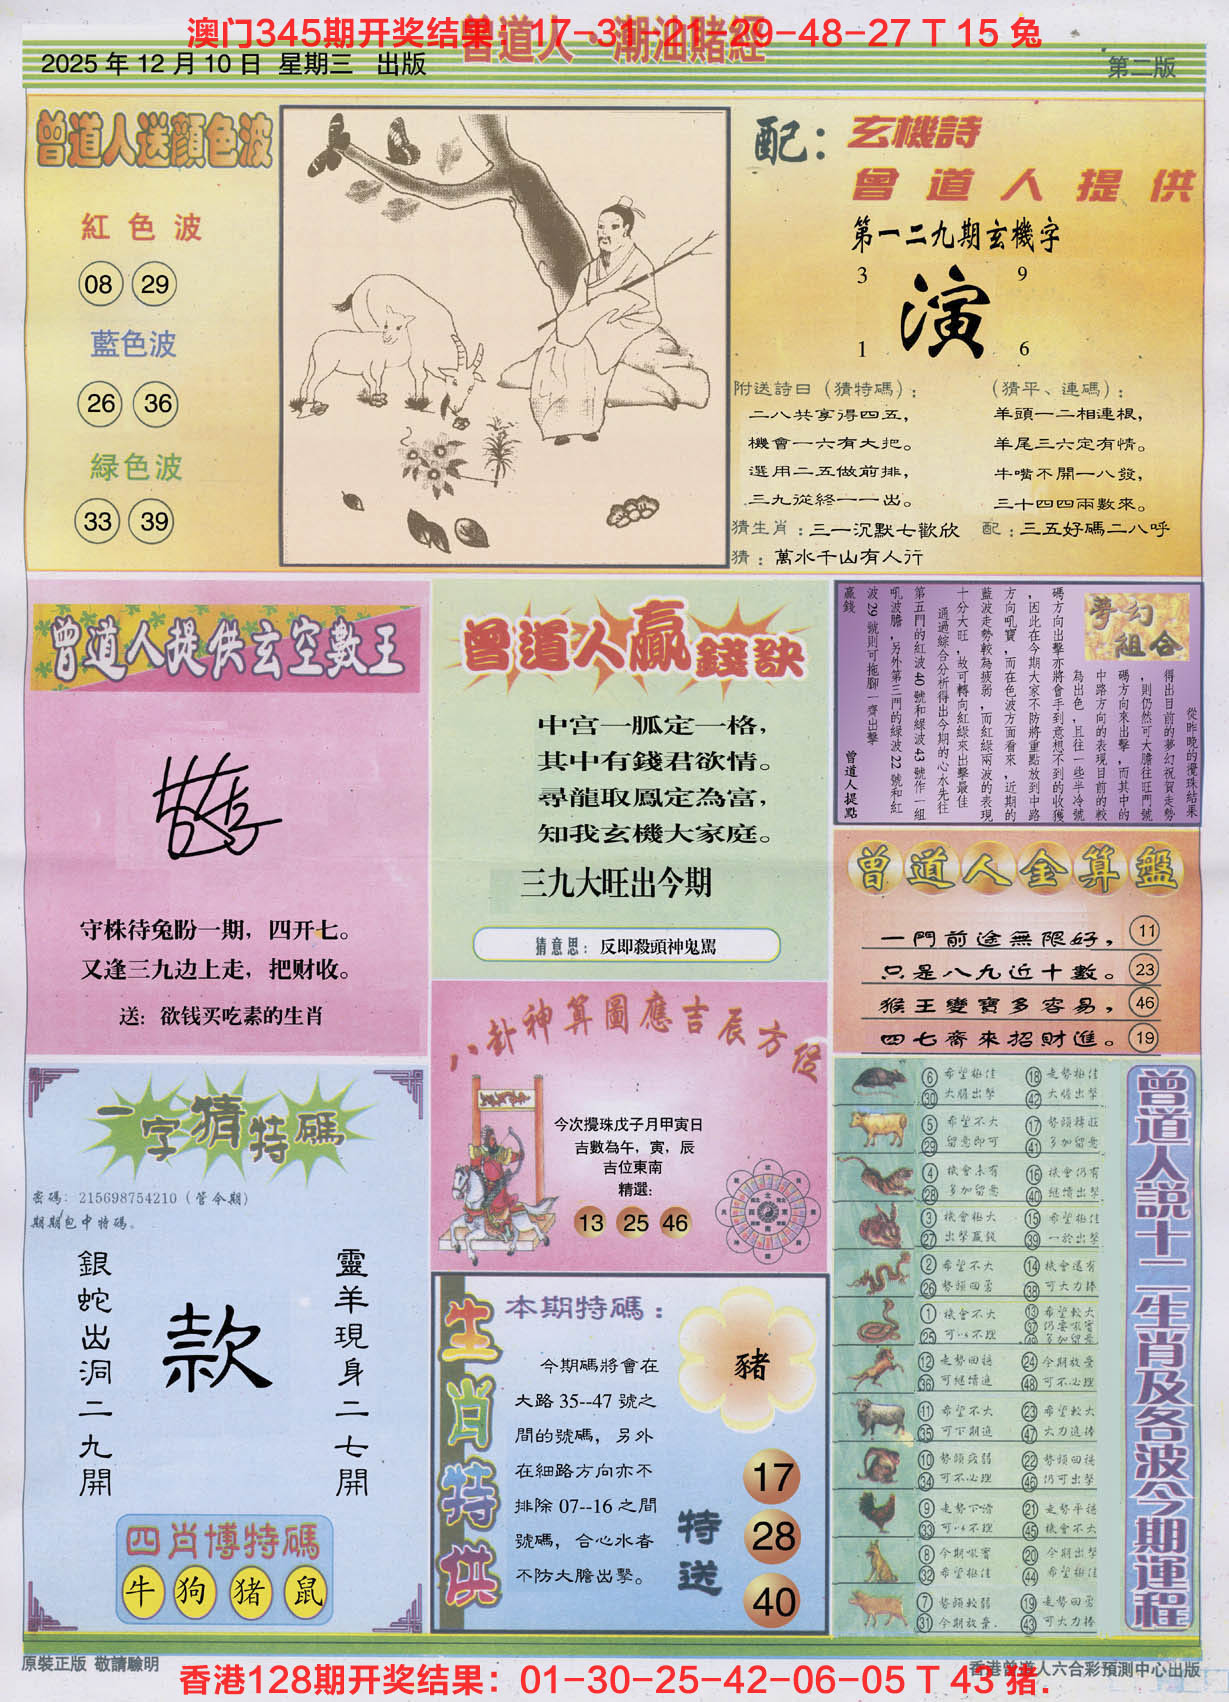 澳门345期开奖结果：17-31-21-29-48-27 T 15 兔
曾道人·潮汕賭經
2025 年 12 月 10 日  星期三   出版
第二版
曾道人送顏色波
紅色波
08 29
藍色波
26 36
緑色波
33 39
配：玄機詩
曾道人提供
第一二九期玄機字
3 9
演
1 6
附送詩曰（猜特碼）：
二八共享得四五，
機會一六有大把。
選用二五做前排，
三九從終一一出。
（猜平、連碼）：
羊頭一二相連根，
羊尾三六定有情。
牛嘴不開一八發，
三十四四兩數來。
猜生肖：三一沉默七歡欣
配：三五好碼二八呼
猜：萬水千山有人行
曾道人提供玄空數王
守株待兔盼一期，四开七。
又逢三九边上走，把财收。
送：欲钱买吃素的生肖
曾道人贏錢訣
中宫一胍定一格，
其中有錢君欲情。
尋龍取鳳定為富，
知我玄機大家庭。
三九大旺出今期
猜意思：反即殺頭神鬼罵
夢幻組合
從昨晚的攪珠結果
得出目前的夢幻祝賀走勢
，則仍然可大膽往旺門號
碼方向來出擊，而其中的
中路方向的表現目前的較
為出色，且往一些半冷號
碼方向出擊亦將會手到意想不到的收獲
，因此在今期大家不防將重點放到中路
方向吼寶，而在色波方面看來，近期的
藍波走勢較為疲弱，而紅緑兩波的表現
十分大旺，故可轉向紅緑來出擊最佳
通過綜合分析得出今期的心水先往
第五門的紅波 40 號和緑波 43 號作一組
吼波膽，另外第三門的緑波 22 號和紅
波 29 號則可拖腳一齊出擊
贏錢
曾道人提點
曾道人金算盤
一門前途無限好， 11
只是八九近十數。 23
猴王變寶多容易， 46
四七齊來招財進。 19
八卦神算圖應吉辰方位
今次攪珠戊子月甲寅日
吉數為午，寅，辰
吉位東南
精選：
13 25 46
一字猜特碼
密碼：215698754210（管令期）
期期包中特碼。
銀蛇出洞二九開
款
靈羊現身二七開
四肖博特碼
牛 狗 猪 鼠
生肖特供
本期特碼：
豬
今期碼將會在
大路 35--47 號之
間的號碼，另外
在細路方向亦不
排除 07--16 之間
號碼，合心水者
不防大膽出擊。
特送
17
28
40
曾道人説十二生肖及各波今期運程
6 30 希望極佳 大膽出擊 18 42 走勢極佳 大膽出擊
5 29 希望不大 留意即可 17 41 勢頭轉旺 多加留意
4 28 機會未有 多加留意 16 40 機會仍有 繼續出擊
3 27 機會極大 出擊贏錢 15 39 希望極佳 一於出擊
2 26 希望不大 勢頭回勇 14 38 機會還有 可大力捧
1 25 機會不大 可以不理 13 37 49 希望較大 仍要吼實 多加留意
12 36 走勢回穩 可繼續進 24 48 今期放棄 可不必理
11 35 希望不大 可下期進 23 47 希望較大 大力進捧
10 34 勢頭疲弱 可不必理 22 46 勢頭回穩 仍可出擊
9 33 走勢下滑 可以不理 21 45 走勢平穩 機會不大
8 32 今期吼實 希望極佳 20 44 今期出擊 希望極佳
7 31 勢頭較弱 今期放棄. 19 43 走勢回勇 可大力捧
原裝正版  敬請驗明
香港曾道人六合彩預測中心出版
香港128期开奖结果：01-30-25-42-06-05 T 43 猪.